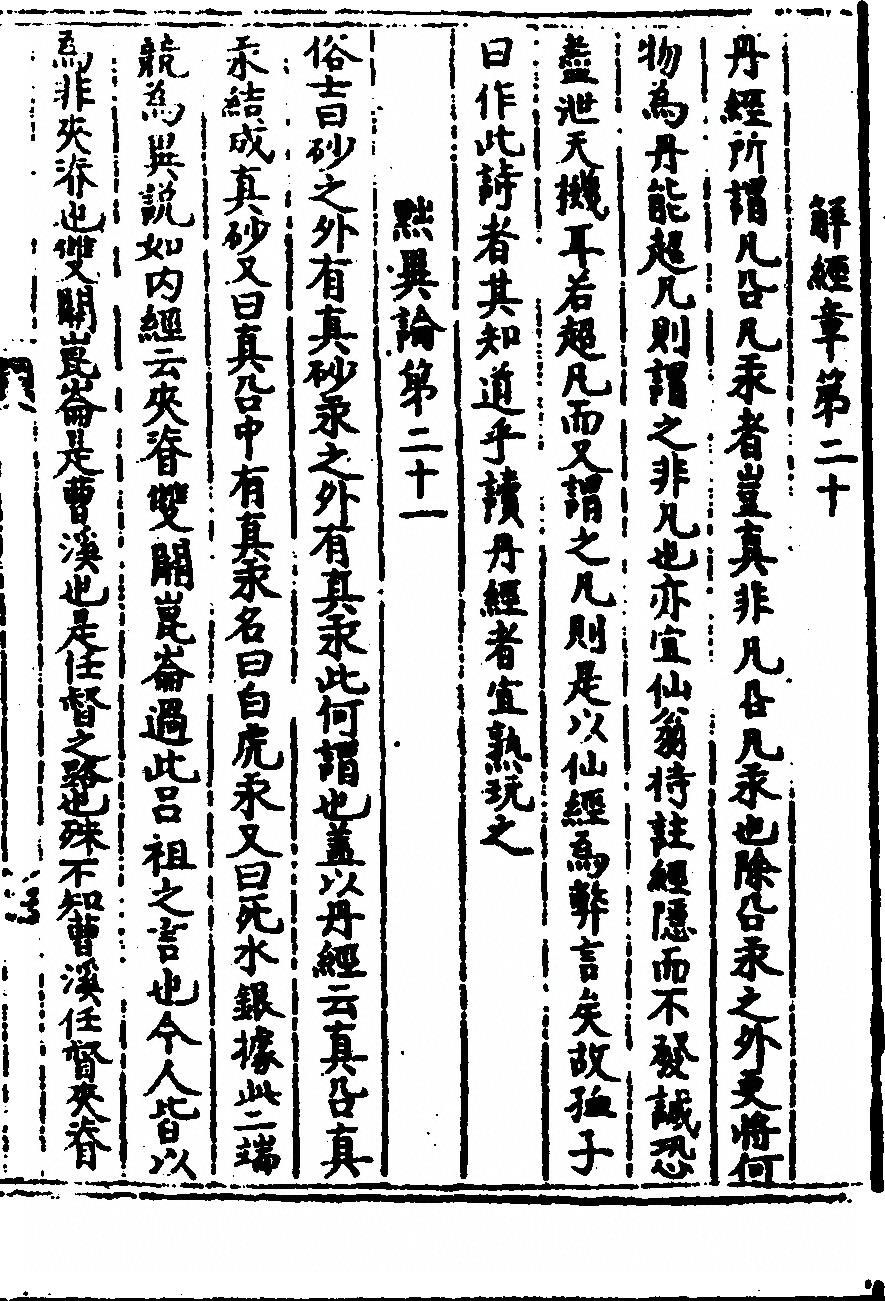 解經章第二十
丹經所謂凡鉛凡汞者豈真非凡鉛凡汞也除鉛汞之外更將何
物為丹能超凡則謂之非凡也亦宜仙翁待註經隱而不發誠恐
盡泄天機耳若超凡而又謂之凡則是以仙經為弊言矣故孤子
曰作此詩者其知道乎讀丹經者宜熟玩之
黜異論第二十一
俗士曰砂之外有真砂汞之外有真汞此何謂也蓋以丹經云真鉛真
汞結成真砂又曰真鉛中有真汞名曰白虎汞又曰死水銀據此二端
競為異說如內經云夾脊雙關崑崙過此呂祖之言也今人皆以
為非夾脊也雙關崑崙是曹溪也是任督之路也殊不知曹溪任督夾脊